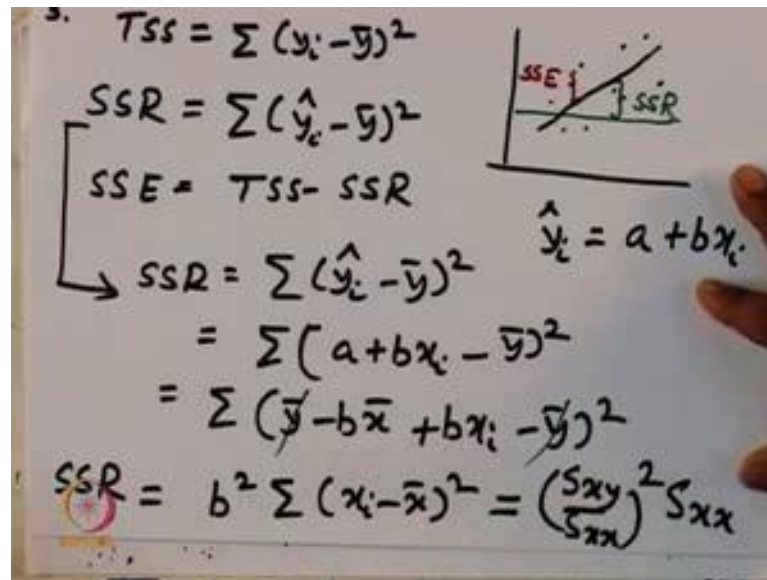 3. TSS = Σ (yᵢ - ȳ)²
SSR = Σ (ŷᵢ - ȳ)²
SSE = TSS - SSR
SSE
SSR
ŷᵢ = a + bxᵢ
SSR = Σ (ŷᵢ - ȳ)²
= Σ (a + bxᵢ - ȳ)²
= Σ (ȳ - bx̄ + bxᵢ - ȳ)²
SSR = b² Σ (xᵢ - x̄)² = (Sxy/Sxx)² Sxx